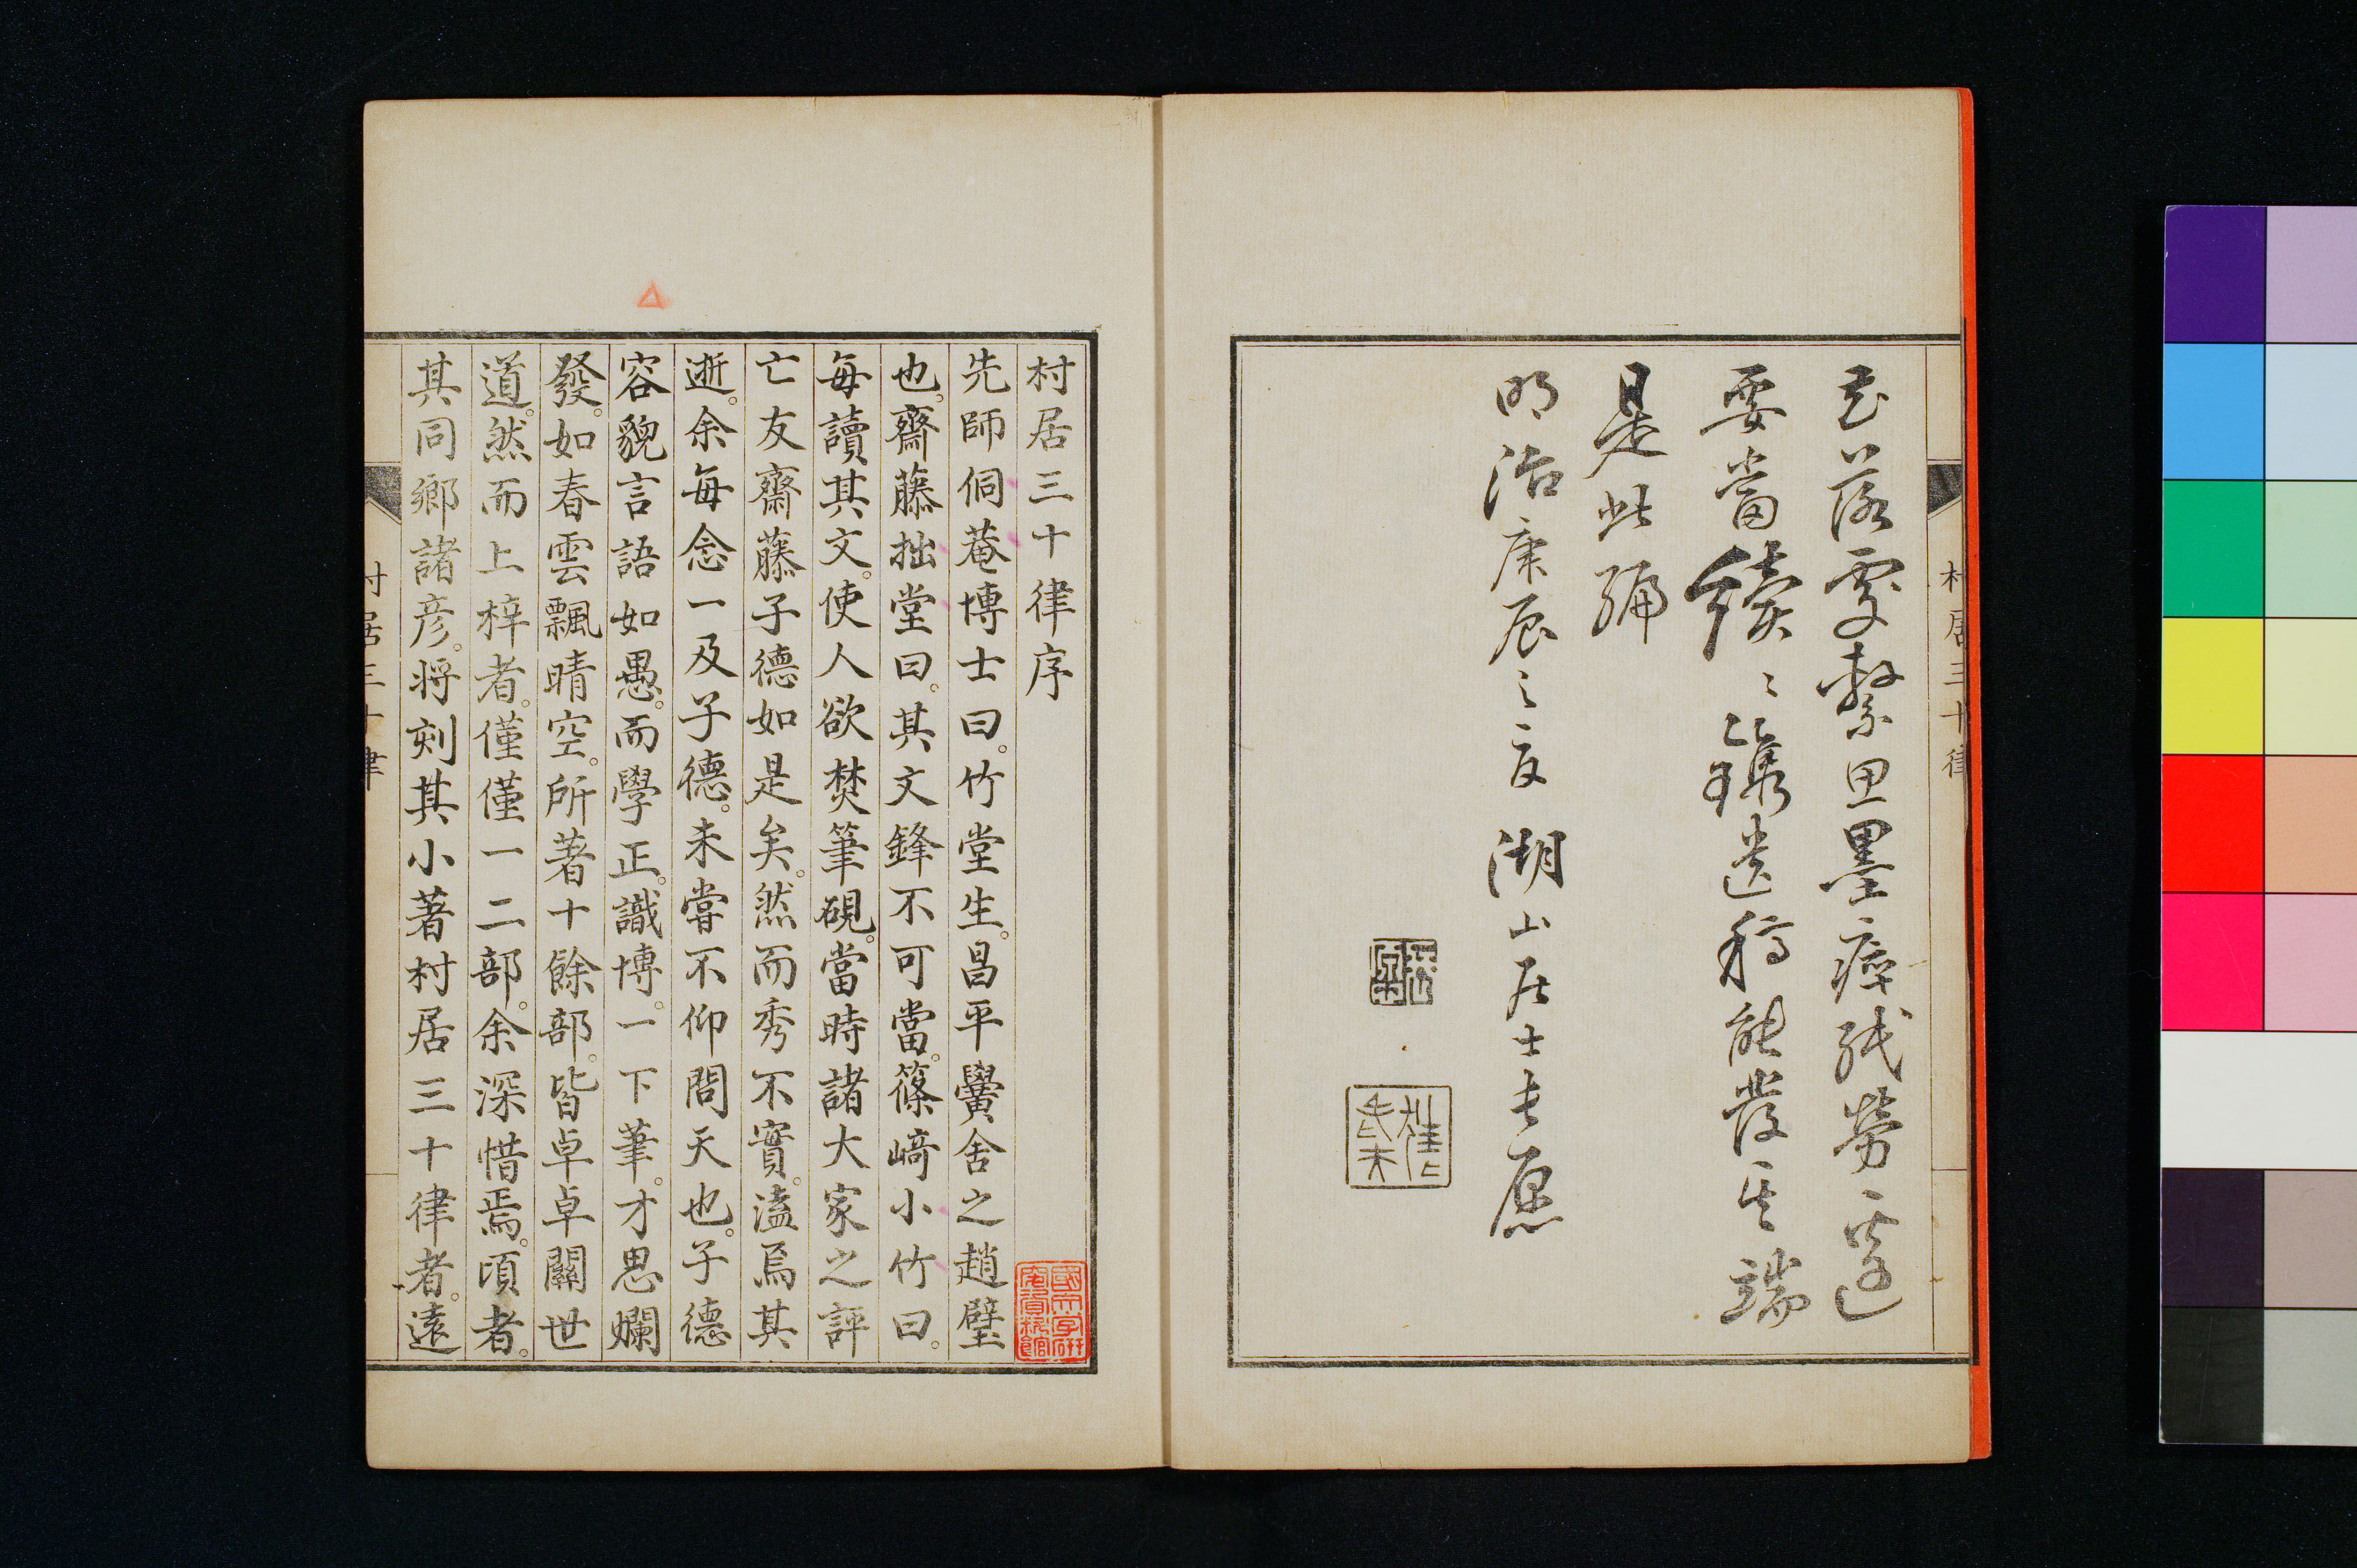 花落處繫思墨痕殘勞〻遠
要當續〻鐫遺稿能發其端
是此編
明治庚辰之夏 湖山居士長愿
村居三十律
村居三十律序
先師侗菴博士曰。竹堂生。昌平黌舍之趙璧
也。齋藤拙堂曰。其文鋒不可當。篠﨑小竹曰。
每讀其文。使人欲焚筆硯。當時諸大家之評
亡友齋藤子德如是矣。然而秀不實。溘焉其
逝。余每念一及子德。未嘗不仰問天也。子德
容貌言語如愚。而學正。識博。一下筆。才思爛
發。如春雲飄晴空。所著十餘部。皆卓卓關世
道。然而上梓者。僅僅一二部。余深惜焉。頃者。
其同鄉諸彥。將刻其小著村居三十律者。遠
村居三十律